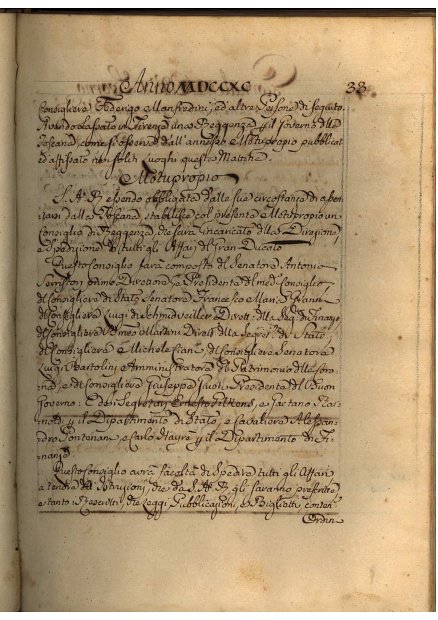 Anno MDCCXC 33
Consigliere Federigo Manfredini, ed altre Persone di seguito.
Avendo lasciato in Firenze una Reggenza p. il Governo della
Toscana, come si osserva dall'annesso Motuproprio pubblicat
ed affissato nei soliti Luoghi questa Mattina.
Motuproprio
S. A. R. essendo obbligata dalle sue circostanze di assen
tarsi dalla Toscana, stabilisce col presente Motuproprio un
Consiglio di Reggenza che sarà incaricato della Direzione,
e Spedizione di tutti gli Affari del Gran Ducato
Questo Consiglio sarà composto del Senatore Antonio
Serristori primo Direttore, e Presidente del med. Consiglio,
del Consigliere di Stato Senatore Francesco Maria Gianni
del Consigliere Luigi di Schmidveiller Dirett. della Seg. di Finanze,
del Consigliere Martini Dirett. della Segret. di Stato,
del Consigliere Michele Ciani, del Consigliere Senatore
Luigi Bartolini Amministratore del Patrimonio della Coro
na, e del Consigliere Giuseppe Giusti Presidente del Buon
Governo: E dei Segretari Ernesto Gilkens, e Gaetano Rai
noldi p. il Dipartimento di Stato, e Cavaliere Alessan
dro Pontenani e Carlo Mayrè p. il Dipartimento di Fi
nanze
Questo Consiglio avrà facoltà di Spedire tutti gli Affari
a tenore da Istruzioni, che da S. A. R. gli saranno presentate
e tanto i Rescritti, che Leggi, Pubblicazioni, e Biglietti conten
Ordin